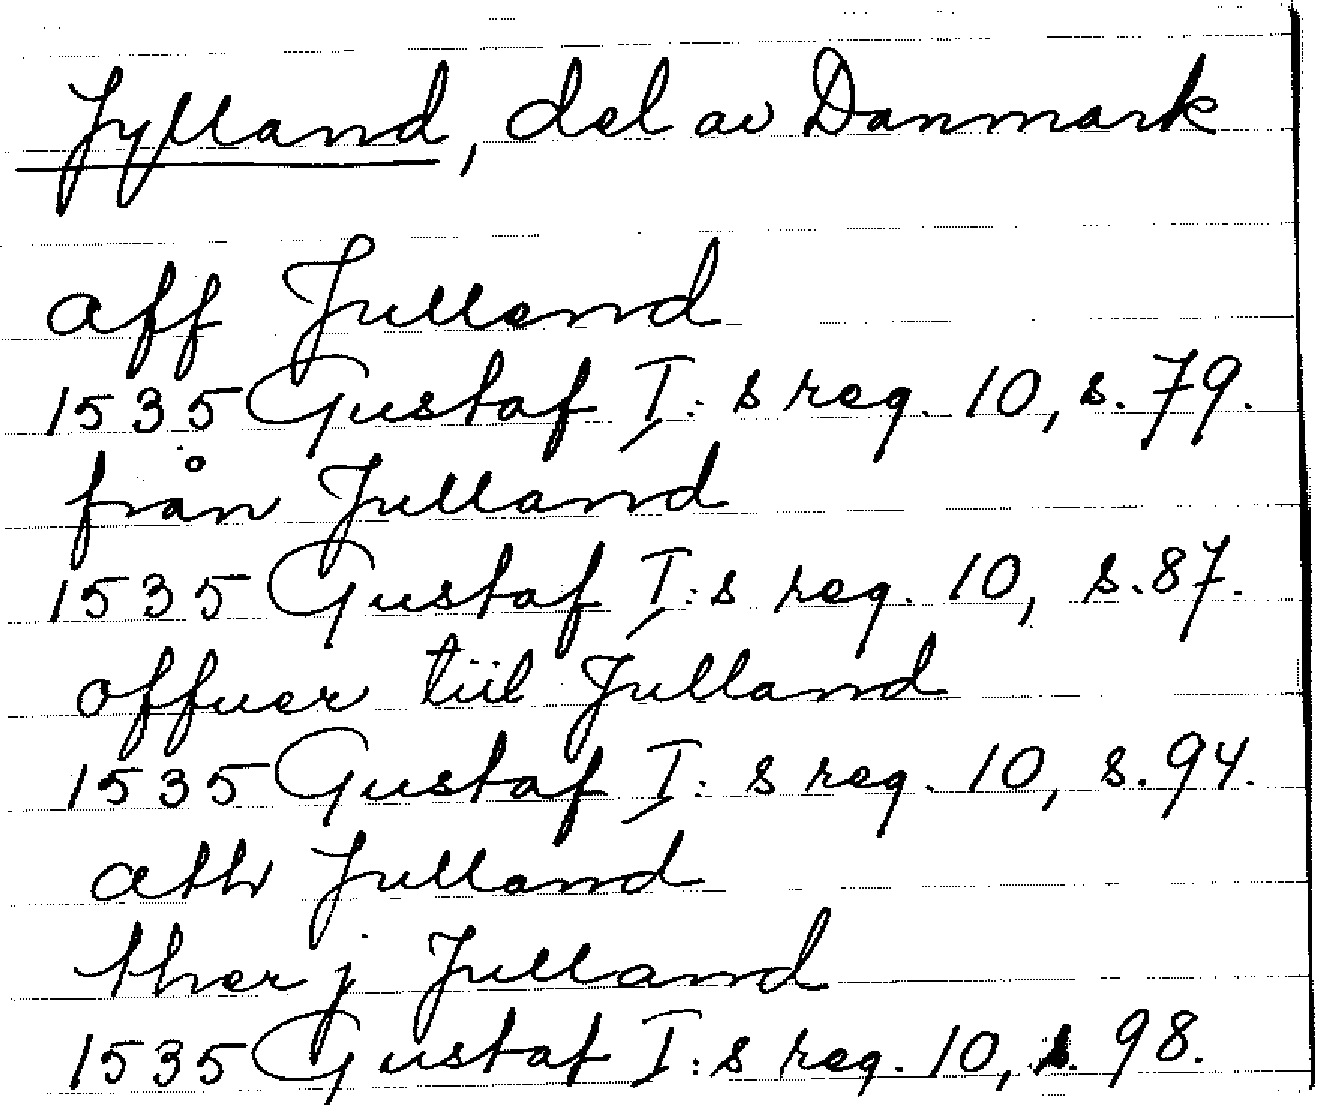 Jylland, del av Danmark
aff Julland
1535 Gustaf I:s reg. 10, s. 79.
från Julland
1535 Gustaf I:s reg. 10, s. 87.
offuer tiil Julland
1535 Gustaf I:s reg. 10, s. 94.
ath Julland
ther j Julland
1535 Gustaf I:s reg. 10, s. 98.